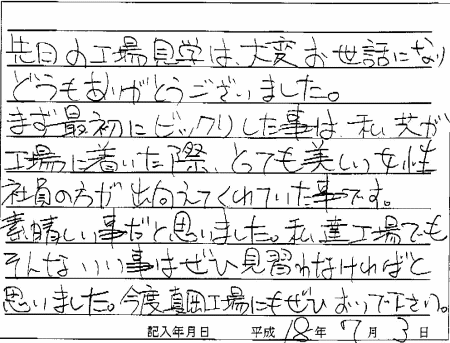 先日の工場見学は、大変お世話になり
どうもありがとうございました。
まず最初にビックリした事は、私共が
工場に着いた際、とっても美しい女性
社員の方が出向えてくれていた事です。
素晴しい事だと思いました。私達工場でも
そんないい事はぜひ見習わなければと
思いました。今度真岡工場にもぜひおいで下さい。
記入年月日 平成 18年 7月 3日